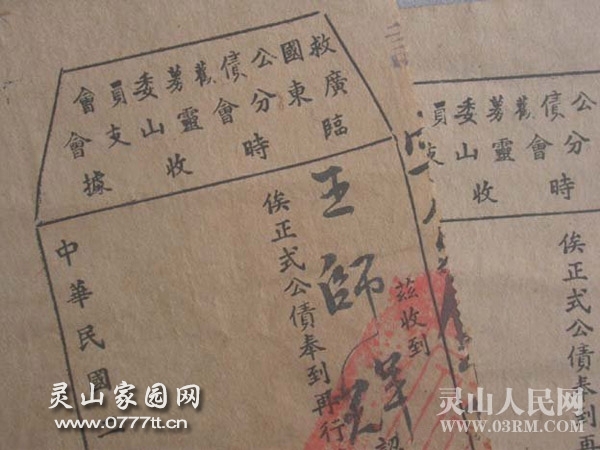 救國公債勸募委員會
廣東分會靈山支會
臨時收據
茲收到
王師
認
俟正式公債奉到再行
中華民國
公債勸募委員
分會靈山支
時收
俟正式公債奉到再
灵山家园网
www.0777tt.cn
灵山人民网
www.03RM.COM